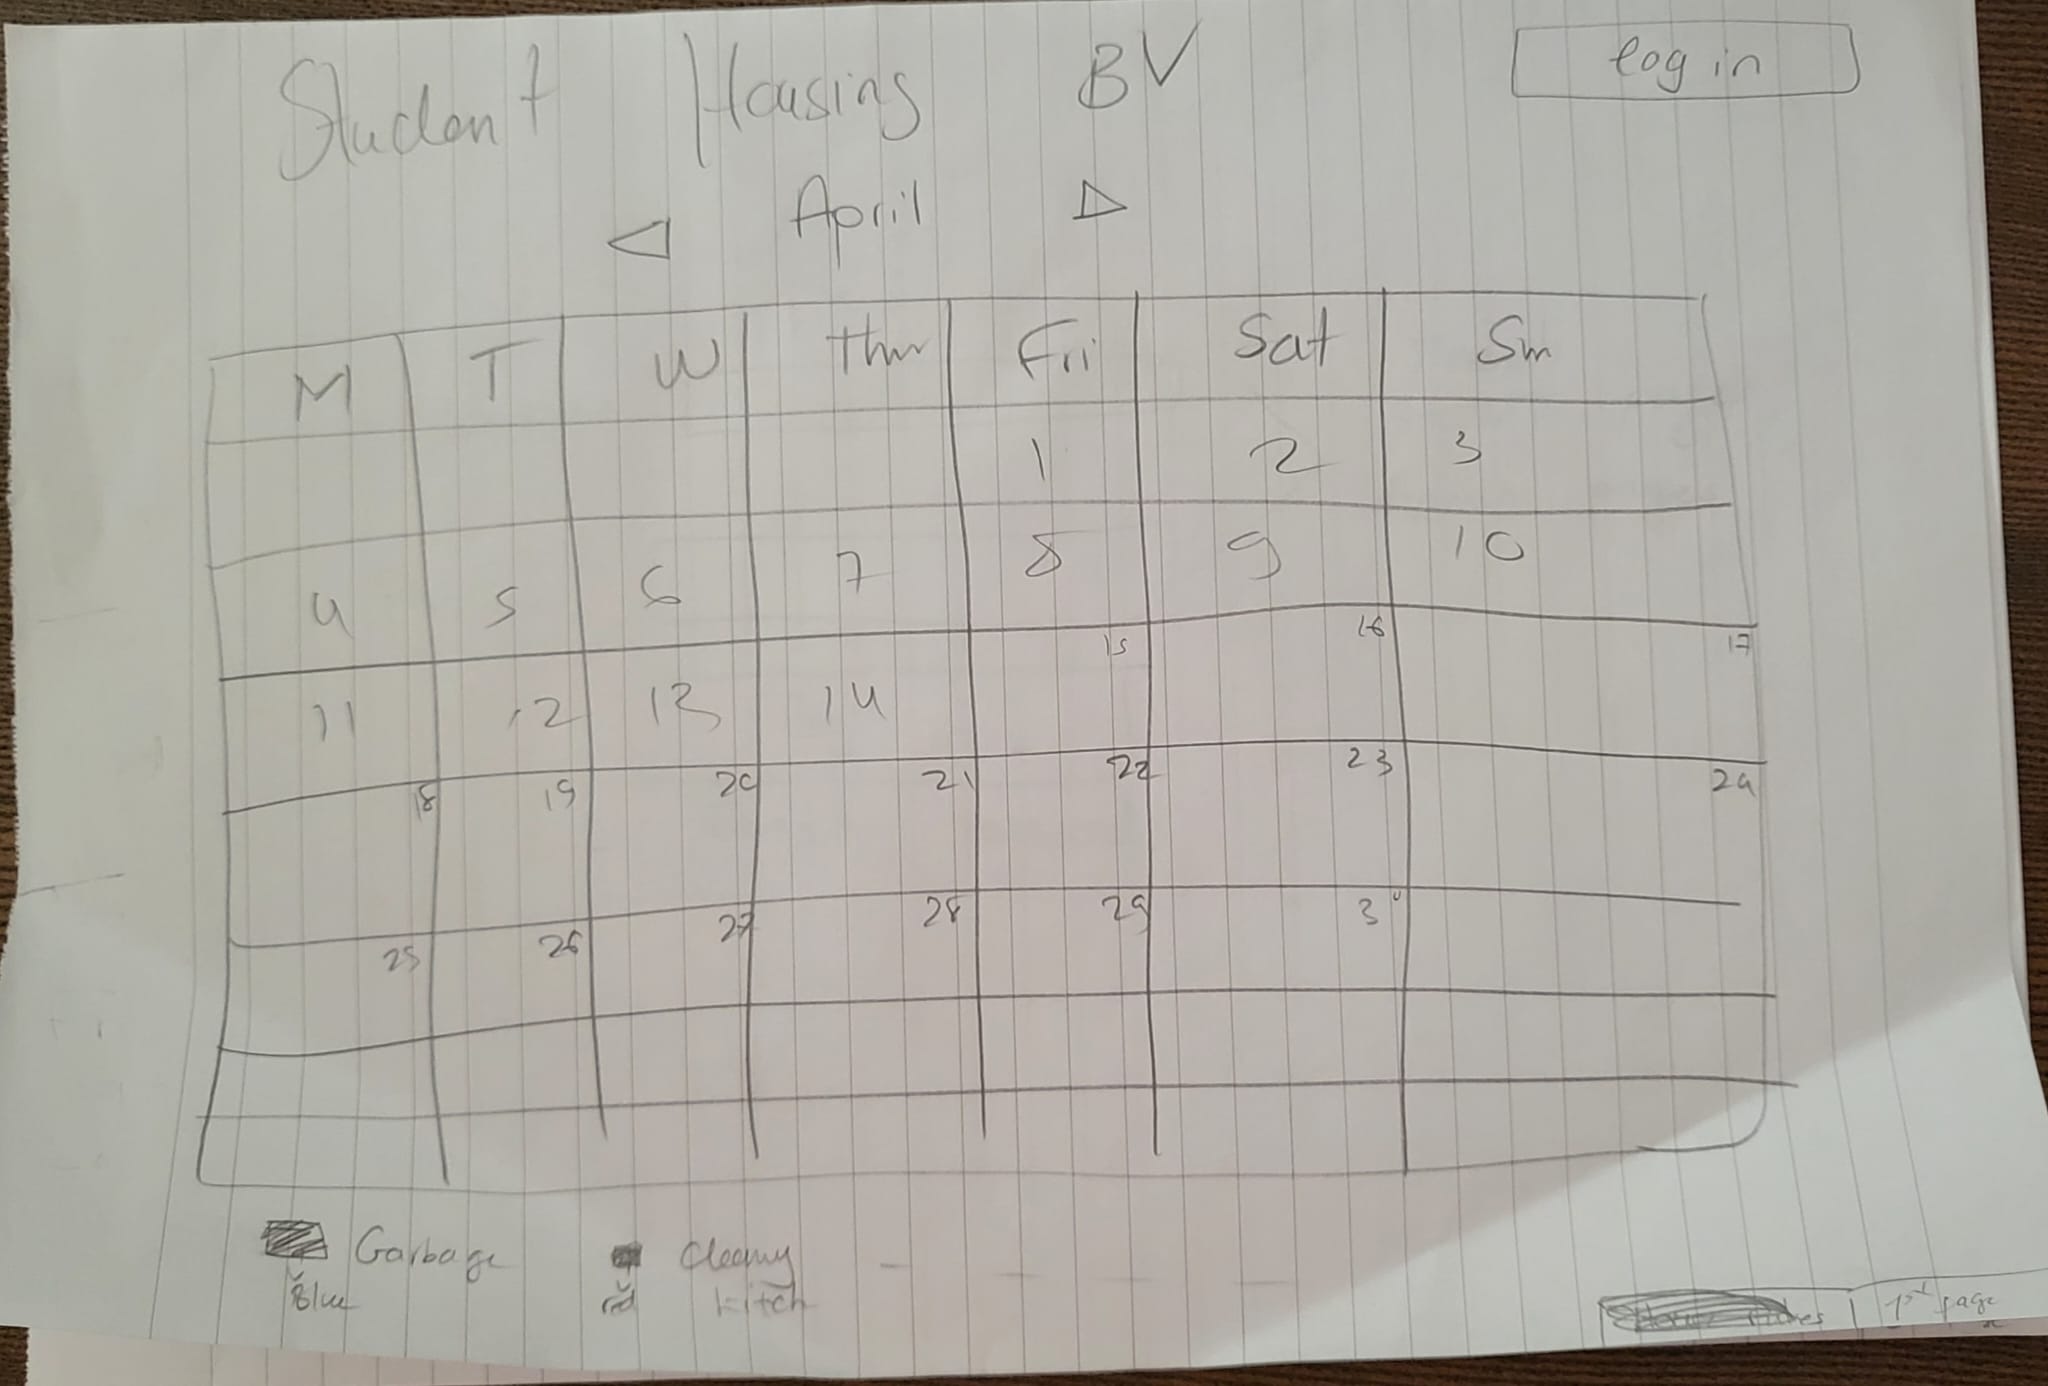 Student Housing BV
log in
April
M T W Thur Fri Sat Sun
1 2 3
4 5 6 7 8 9 10
11 12 13 14 15 16 17
18 19 20 21 22 23 24
25 26 27 28 29 30
Garbage
Blue
Cleaning
red kitch
1st page